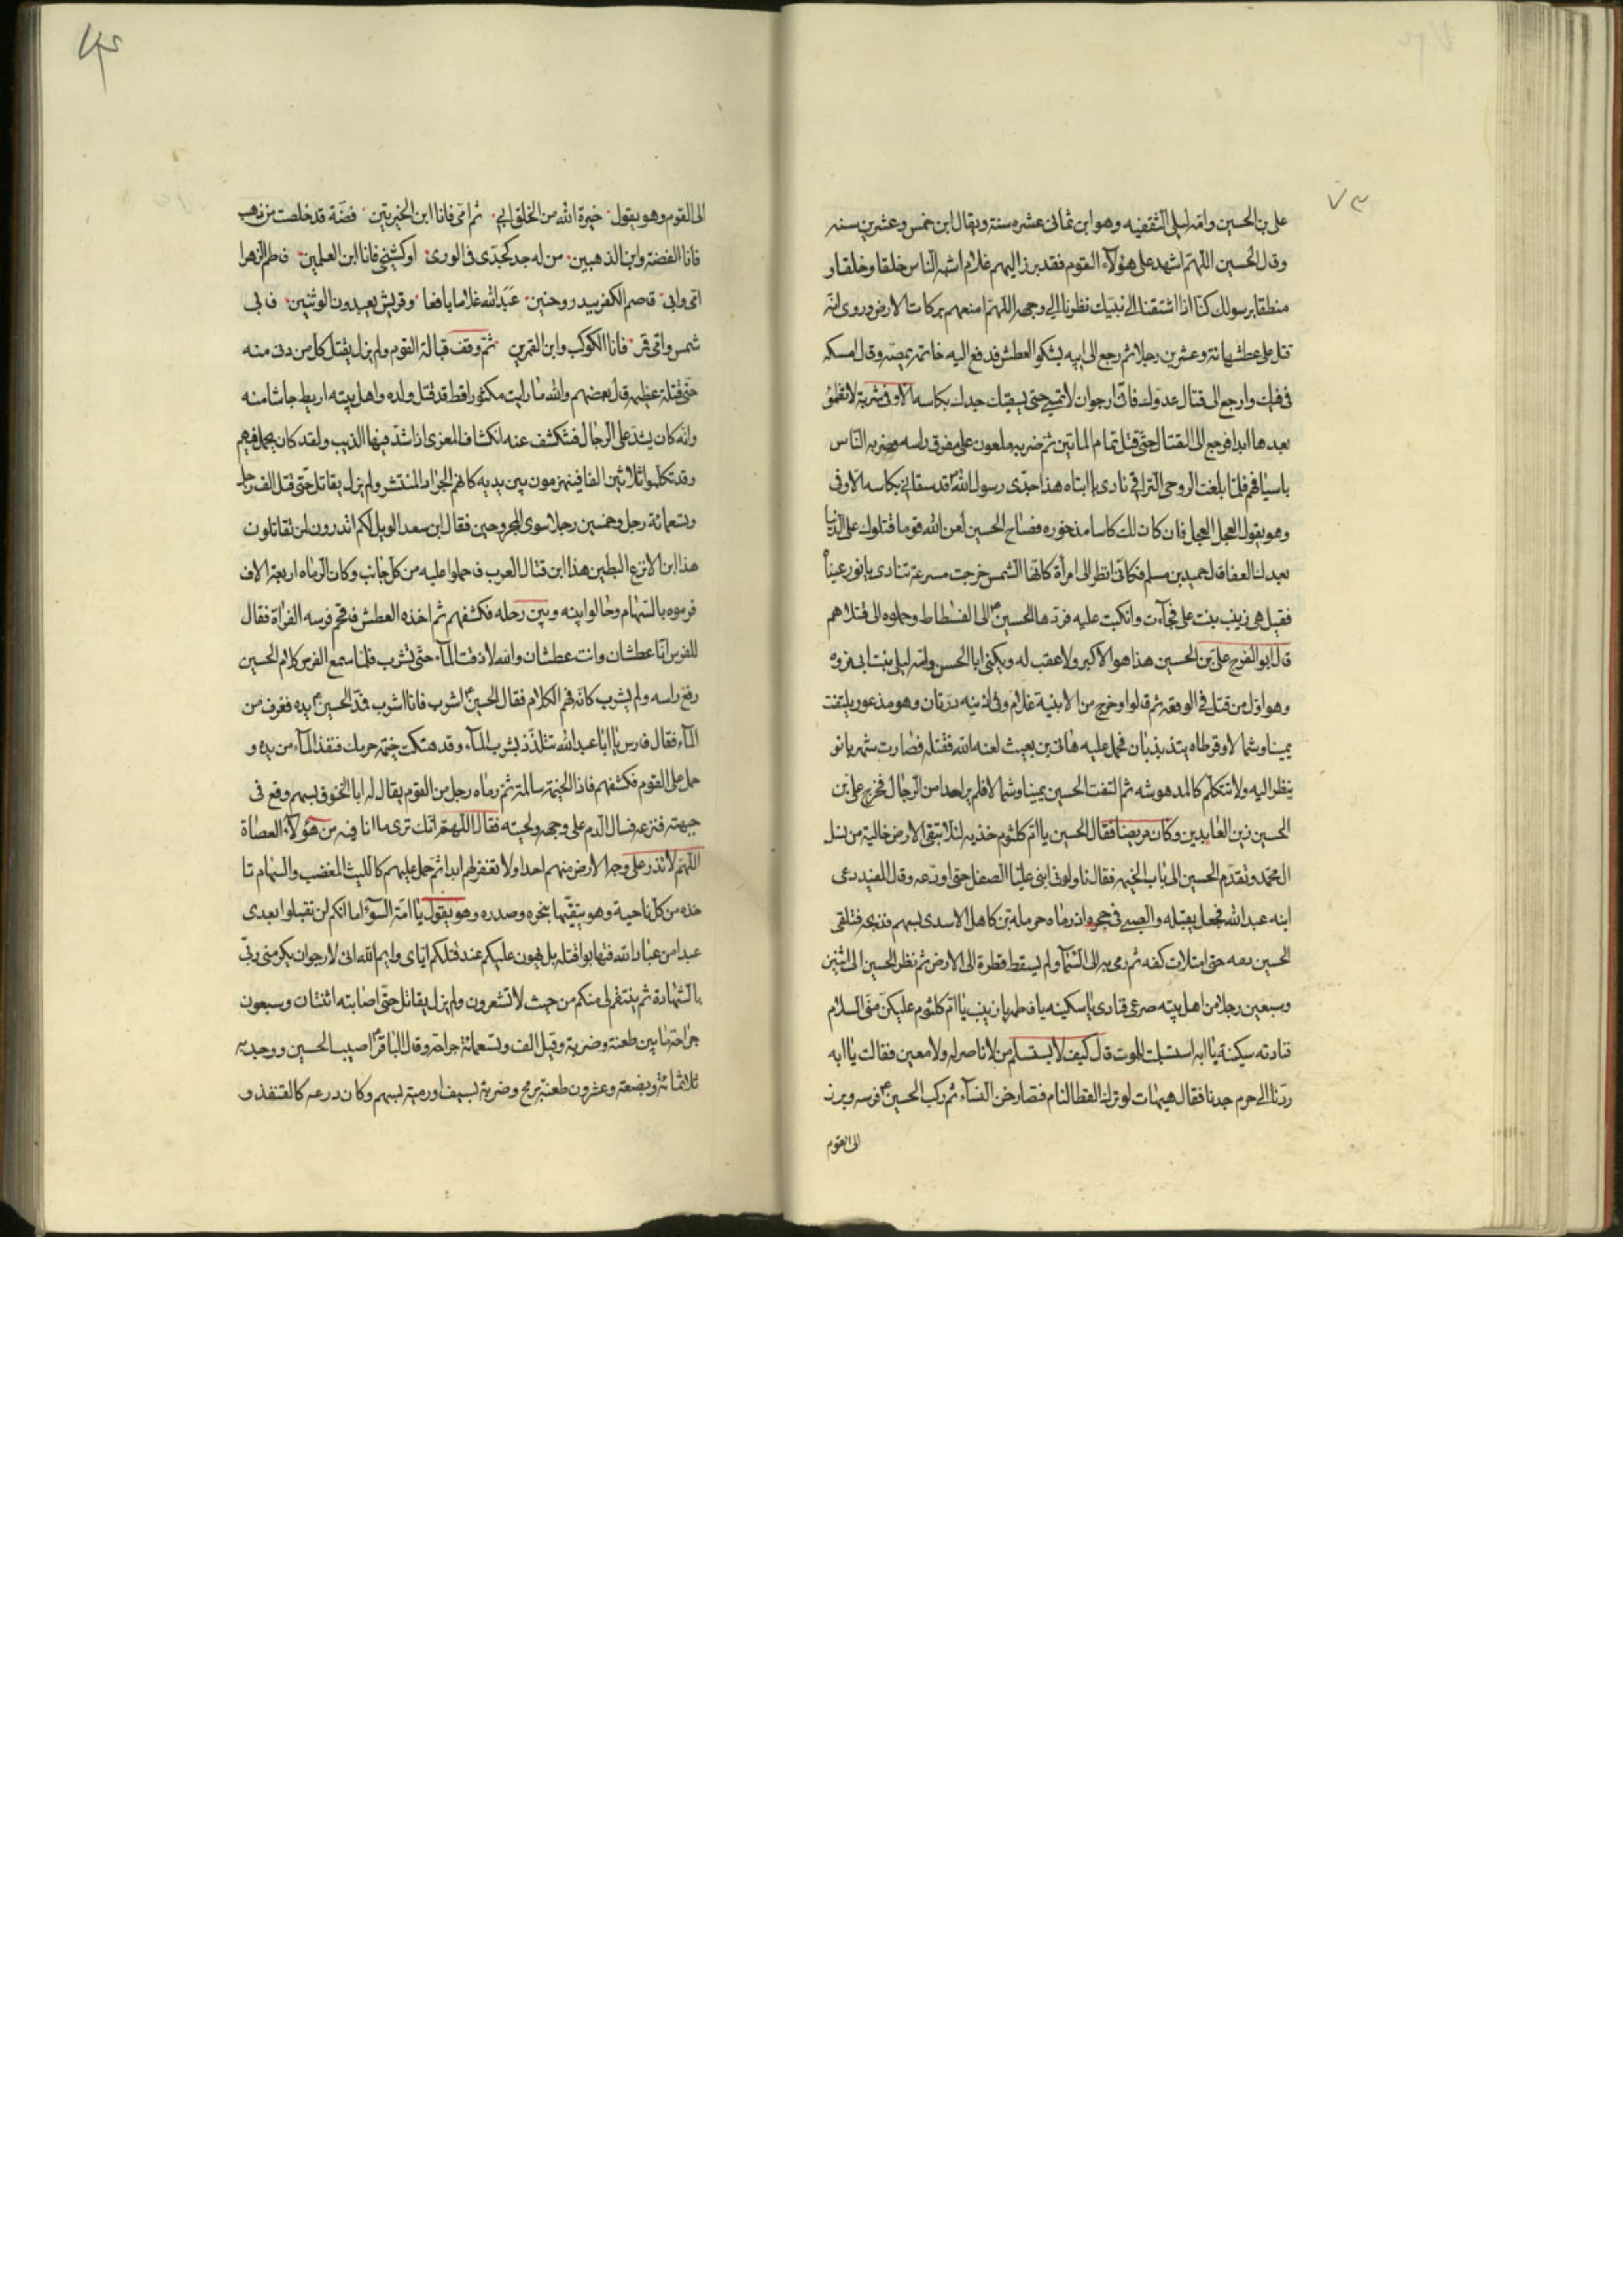 ٧٣
علی بن الحسین وامه لیلی الثقفیه وهو ابن ثمانی عشره سنة ویقال ابن خمس وعشرین سنه
وقال الحسین اللهم اشهد علی هؤلاء القوم فقد برز الیهم غلام اشبه الناس خلقا وخلقا و
منطقا برسولك كنا اذا اشتقنا الی نبیك نظرنا الی وجهه اللهم امنعهم بركات الارض وروی انه
قتل علی عطشه مائة وعشرین رجلا ثم رجع الی ابیه یشكو العطش فدفع الیه خاتمه یمصه وقال امسكه
فی فیك وارجع الی قتال عدوك فانی ارجو ان لا تمسی حتی یسقیك جدك بكاسه الاوفی شربة لا تظمؤ
بعدها ابدا فرجع الی القتال حتی قتل تمام المأتین ثم ضربه ملعون علی مفرق راسه وضربه الناس
باسیافهم فلما بلغت الروحی التراقی نادی یا ابتاه هذا جدی رسول الله قد سقانی بكاسه الاوفی
وهو یقول العجل العجل فان كان لك كاسا مذخوره فصاح الحسین لعن الله قوما قتلوك علی الدنیا
بعدك العفا قال حمید بن مسلم فكانی انظر الی امرأة كانها الشمس خرجت مسرعة تنادی یا نور عیناه
فقیل هی زینب بنت علی فجاءت وانكبت علیه فردها الحسین الی الفسطاط وحملوه الی قتلاهم
قال ابو الفرج علی بن الحسین هذا هو الاكبر ولا عقب له ویكنی ابا الحسن وامه لیلی بنت ابی مره
وهو اول من قتل فی الوقعه ثم قالوا وخرج من الابنیة غلام وفی اذنیه درتان وهو مذعور یلتفت
یمینا وشمالا وقرطاه یتذبذبان فحمل علیه هانی بن بعیث لعنه الله فقتله فصارت شهربانو
ینظر الیه ولا تتكلم كالمدهوشه ثم التفت الحسین یمینا وشمالا فلم یر احدا من الرجال فخرج علی بن
الحسین زین العابدین وكان مریضا فقال الحسین یا ام كلثوم خذیه لئلا تبقی الارض خالیة من نسل
ال محمد وتقدم الحسین الی باب الخیمه فقال ناولونی ابنی علیا الصفل حتی اودعه وقال المفید دعی
ابنه عبد الله فجعل یقبله والصبی فی حجره اذ رماه حرملة بن كاهل الاسدی بسهم فذبحه فتلقی
الحسین دمه حتی امتلات كفه ثم رمی به الی السماء ولم یسقط قطرة الی الارض ثم نظر الحسین الی اثنین
وسبعین رجلا من اهل بیته صرعی فنادی یا سكینه یا فاطمه یا زینب یا ام كلثوم علیكن منی السلام
فنادته سكینة یا ابه استسلمت للموت قال كیف لا یستسلم من لا ناصر له ولا معین فقالت یا ابه
ردنا الی حرم جدنا فقال هیهات لو ترك القطا لنام فتصارخن النساء ثم ركب الحسین فرسه وبرز
الی القوم
الی القوم وهو یقول خیرة الله من الخلق ابی ثم امی فانا ابن الخیرتین فضة قد خلصت من ذهب
فانا الفضة وابن الذهبین من له جد كجدی فی الوری او كشیخی فانا ابن العلمین فاطم الزهرا
امی وابی قاصم الكفر ببدر وحنین عبد الله غلاما یافعا وقریش یعبدون الوثنین فابی
شمس وامی قمر فانا الكوكب وابن القمرین ثم وقف قبالة القوم ولم یزل یقتل كل من دنی منه
حتی قتله عظیمه قال بعضهم والله ما رایت مكثورا قط قد قتل ولده واهل بیته اربط جاشا منه
وانه كان یشد علی الرجال فتنكشف عنه انكشاف المعزی اذا شد فیها الذیب ولقد كان یحمل فیهم
وقد تكملوا ثلاثین الفا فینهزمون بین یدیه كانهم الجراد المنتشر ولم یزل یقاتل حتی قتل الف رجل
وتسعمائة رجل وخمسین رجلا سوی المجروحین فقال ابن سعد الویل لكم اتدرون لمن تقاتلون
هذا ابن الانزع البطین هذا ابن قتال العرب فاحملوا علیه من كل جانب وكان الرماه اربعة الاف
فرموه بالسهام وحالوا بینه وبین رحله فكشفهم ثم اخذه العطش فاقحم فرسه الفراة فقال
للفرس انا عطشان وانت عطشان والله لا ذقت الماء حتی تشرب فلما سمع الفرس كلام الحسین
رفع راسه ولم یشرب كانه فهم الكلام فقال الحسین اشرب فانا اشرب فمد الحسین یده فغرف من
الماء فقال فارس یا ابا عبد الله تتلذذ بشرب الماء وقد هتكت خیمة حرمك فنفذ الماء من یده و
حمل علی القوم فكشفهم فاذا الخیمة سالمة ثم رماه رجل من القوم یقال له ابا الخوق بسهم وقع فی
جبهته فنزعه فسال الدم علی وجهه ولحیته فقال اللهم انك تری ما انا فیه من هؤلاء العصاة
اللهم لا تذر علی وجه الارض منهم احدا ولا تغفر لهم ابدا ثم حمل علیهم كاللیث المغضب والسهام تا
خذه من كل ناحیة وهو یتقیها بنحره وصدره وهو یقول یا امة السوء اما انكم لن تقبلوا بعدی
عبدا من عباد الله فتهابوا قتله بل یهون علیكم عند قتلكم ایای وایم الله انی لارجو ان یكرمنی ربی
بالشهادة ثم ینتقم لی منكم من حیث لا تشعرون ولم یزل یقاتل حتی اصابته اثنتان وسبعون
جراحة ما بین طعنة وضربة وقیل الف وتسعمائة جراحة وقال الباقر اصیب الحسین ووجد به
ثلاثمائة وبضعة وعشرون طعنة برمح وضربة بسیف او رمیة بسهم وكان درعه كالقنفذ و